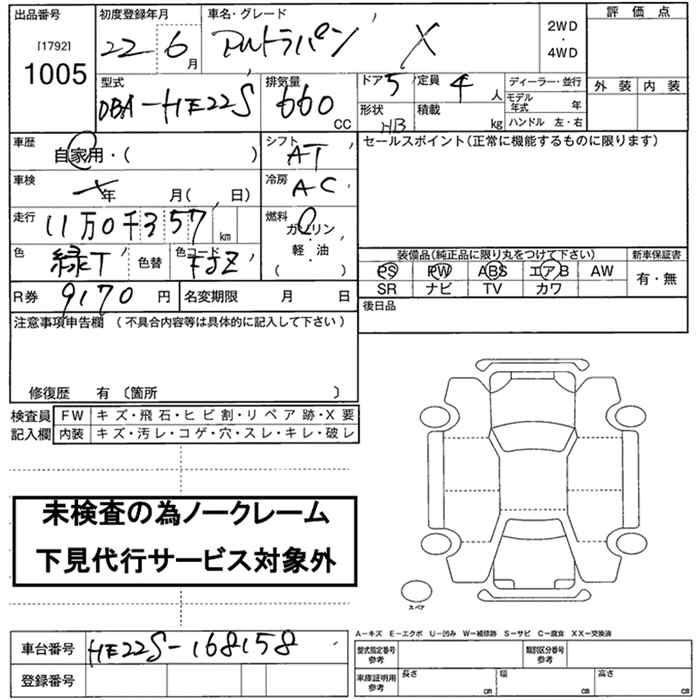 出品番号 初度登録年月 車名・グレード 2WD・4WD 評価点
[1792] 1005 22 6月 アルトラパン X
外装 内装
型式 排気量 ドア 5 定員 4人 ディーラー・並行
DBA-HE22S 660cc モデル年式 年
形状 HB 積載 kg ハンドル 左・右
車歴 自家用・( ) シフト AT セールスポイント(正常に機能するものに限ります)
車検 年 月( 日) 冷房 AC
走行 11万0千357km 燃料 ガソリン・軽・油 ( )
色 緑T 色替 色コード
装備品(純正品に限り丸をつけて下さい) 新車保証書
PS PW ABS エアB AW 有・無
SR ナビ TV カワ
R券 9170円 名変期限 月 日 後日品
注意事項申告欄 (不具合内容等は具体的に記入して下さい)
修復歴 有 〔箇所 〕
検査員 FW キズ・飛石・ヒビ割・リペア跡・X要
記入欄 内装 キズ・汚レ・コゲ・穴・スレ・キレ・破レ
未検査の為ノークレーム
下見代行サービス対象外
スペア
A-キズ E-エクボ U-凹み W-補修跡 S-サビ C-腐食 XX-交換済
車台番号 HE22S-168158 型式指定番号 参考 類別区分番号 参考
登録番号 車庫証明用 参考 長さ cm 幅 cm 高さ cm